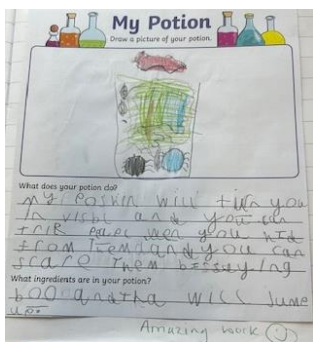 My Potion
Draw a picture of your potion.
What does your potion do?
my poskin will tirn you
in visbl and you can
trir pepel wen you hid
from tem and you can
scare them bissaying
What ingredients are in your potion?
boo and tha will jume
up.
Amazing work